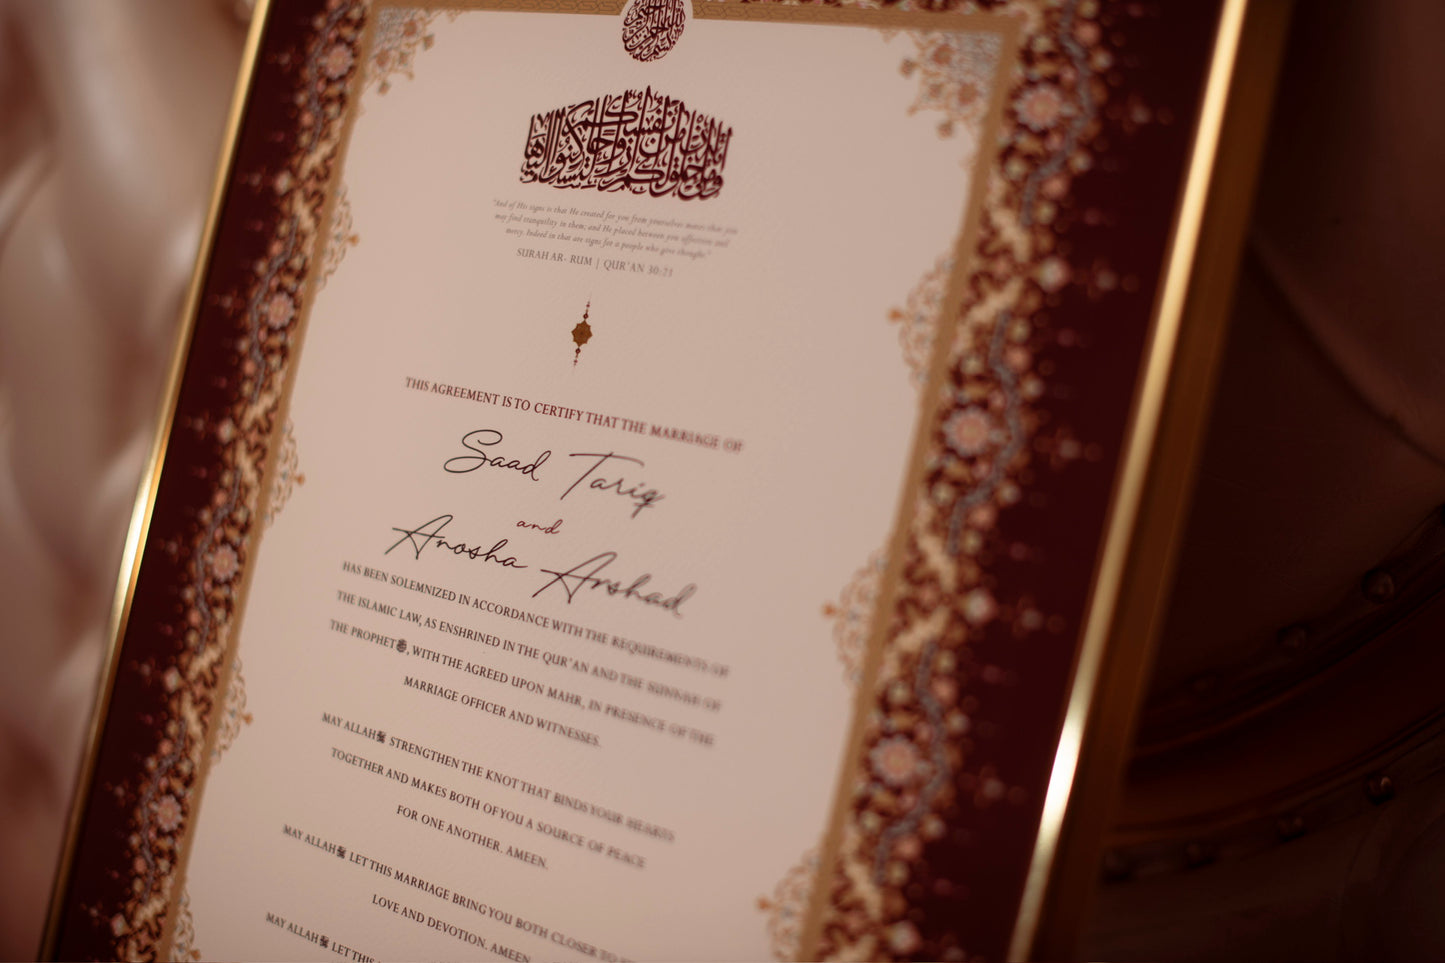 وَمِنْ آيَاتِهِ أَنْ خَلَقَ لَكُم مِّنْ أَنفُسِكُمْ أَزْوَاجًا لِّتَسْكُنُوا إِلَيْهَا
"And of His signs is that He created for you from yourselves mates that you
may find tranquility in them; and He placed between you affection and
mercy. Indeed in that are signs for a people who give thought."
SURAH AR- RUM | QUR'AN 30:21
THIS AGREEMENT IS TO CERTIFY THAT THE MARRIAGE OF
Saad Tariq
and
Anosha Arshad
HAS BEEN SOLEMNIZED IN ACCORDANCE WITH THE REQUIREMENTS OF
THE ISLAMIC LAW, AS ENSHRINED IN THE QUR'AN AND THE SUNNAH OF
THE PROPHET ﷺ, WITH THE AGREED UPON MAHR, IN PRESENCE OF THE
MARRIAGE OFFICER AND WITNESSES.
MAY ALLAH STRENGTHEN THE KNOT THAT BINDS YOUR HEARTS
TOGETHER AND MAKES BOTH OF YOU A SOURCE OF PEACE
FOR ONE ANOTHER. AMEEN.
MAY ALLAH LET THIS MARRIAGE BRING YOU BOTH CLOSER TO
LOVE AND DEVOTION. AMEEN.
MAY ALLAH LET THIS